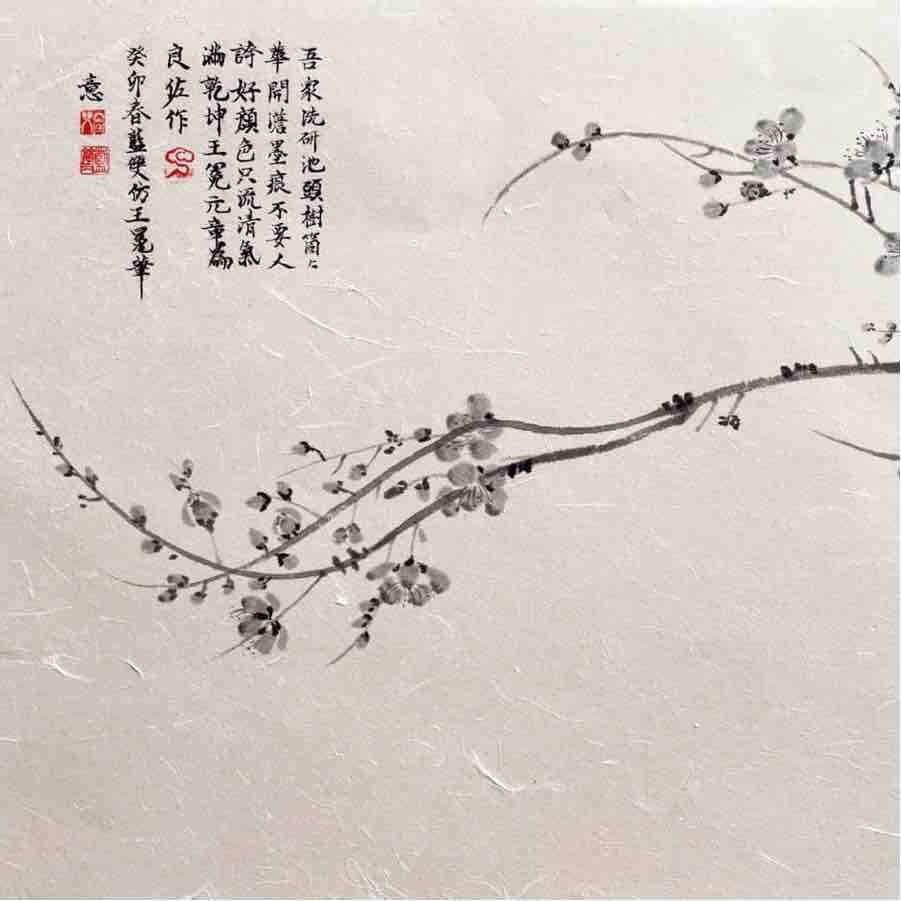 吾家洗研池頭樹箇〻
華開澹墨痕不要人
誇好顔色只流清氣
滿乾坤王冕元章為
良佐作
癸卯春藍雙仿王冕筆
意